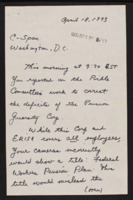 April 18, 1993
C-Span
Washington, D.C.
This morning at 9:30 EST
You reported on the Public
Committees work to correct
the deficits of the Pension
Guaranty Corp.
While this Corp and
ERISA covers all employees,
Your cameras incorrectly
would show a title: Federal
Workers Pension Plan. This
title would mislead the
(over)